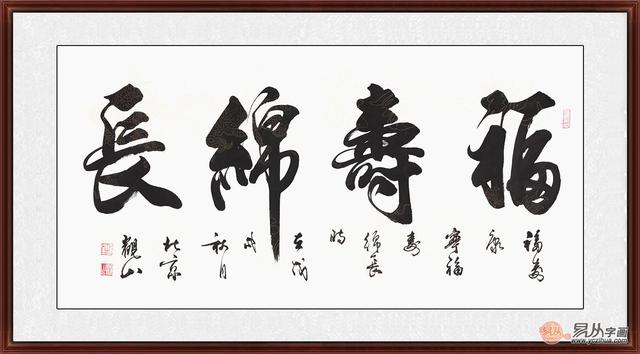 福壽綿長
福壽
康
寧福
壽
綿長
時
在戊
戌
秋月
北京
觀山
易从字画
www.yczihua.com